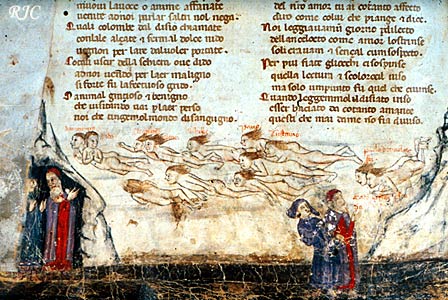 RJC
muoui lauoce o anime affanate
uenite adnoi parlar saltri nol nega.
Quali colombe dal disio chiamate
conlale alçate e ferme al dolce nido
uegnon per laere daluoler portate.
Cotali uscir della schiera oue dido
adnoi uenedo per laer maligno
si forte fu laffectuoso grido.
O animal gratioso e benigno
che uisitando uai plaer perso
noi che tingemolmondo disanguigno.
del nro amor tu ai cotanto affecto
diro come colui che piange e dice.
Noi leggiauamo giorno p dilecto
come amor lostrinse
soli erauam e sençal cun sospecto.
Per piu fiate gliocchi a sospinse
quella lectura e scolorocci il uiso
ma solo umpunto fu quel che ciuinse.
Quando leggemmo il disiato riso
esser basciato da cotanto amante
questi che mai dame no fia diuiso.